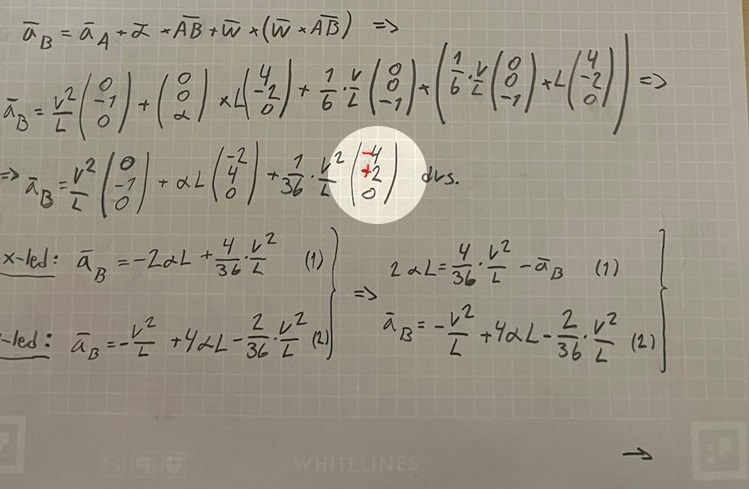 a̅_B = a̅_A + α̅ × A̅B̅ + w̅ × (w̅ × A̅B̅) =>
a̅_B = v²/L (0 -1 0) + (0 0 α) × L (4 -2 0) + 1/6 · v/L (0 0 -1) × (1/6 · v/L (0 0 -1) × L (4 -2 0)) =>
=> a̅_B = v²/L (0 -1 0) + αL (-2 4 0) + 1/36 · v²/L (-4 +2 0) dvs.
x-led: a̅_B = -2αL + 4/36 · v²/L (1)
-led: a̅_B = -v²/L + 4αL - 2/36 · v²/L (2)
=> 2αL = 4/36 · v²/L - a̅_B (1)
a̅_B = -v²/L + 4αL - 2/36 · v²/L (2)
→
WHITELINES